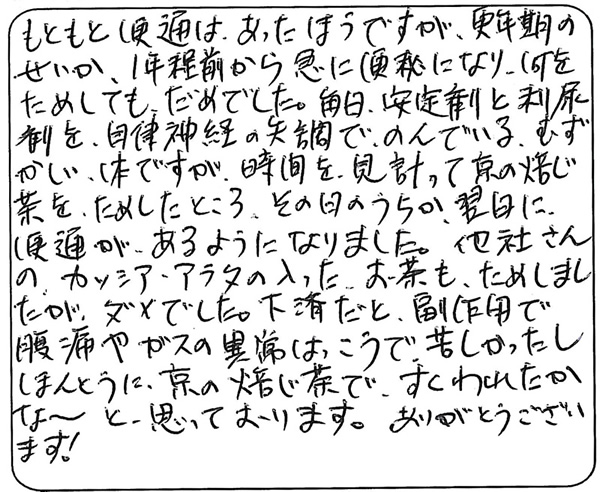 もともと便通は、あったほうですが、更年期の
せいか、1年程前から急に便秘になり、何を
ためしても、だめでした。毎日、安定剤と利尿
剤を、自律神経の失調で、のんでいる、むず
かしい、体ですが、時間を、見計って京の焙じ
茶を、ためしたところ、その日のうちか、翌日に、
便通が、あるようになりました。他社さん
の、カッシア・アラタの入った、お茶も、ためしまし
たが、ダメでした。下済だと、副作用で
腹痛やガスの異常はっこうで、苦しかったし
ほんとうに、京の焙じ茶で、すくわれたか
な〜と、思っております。ありがとうござい
ます!